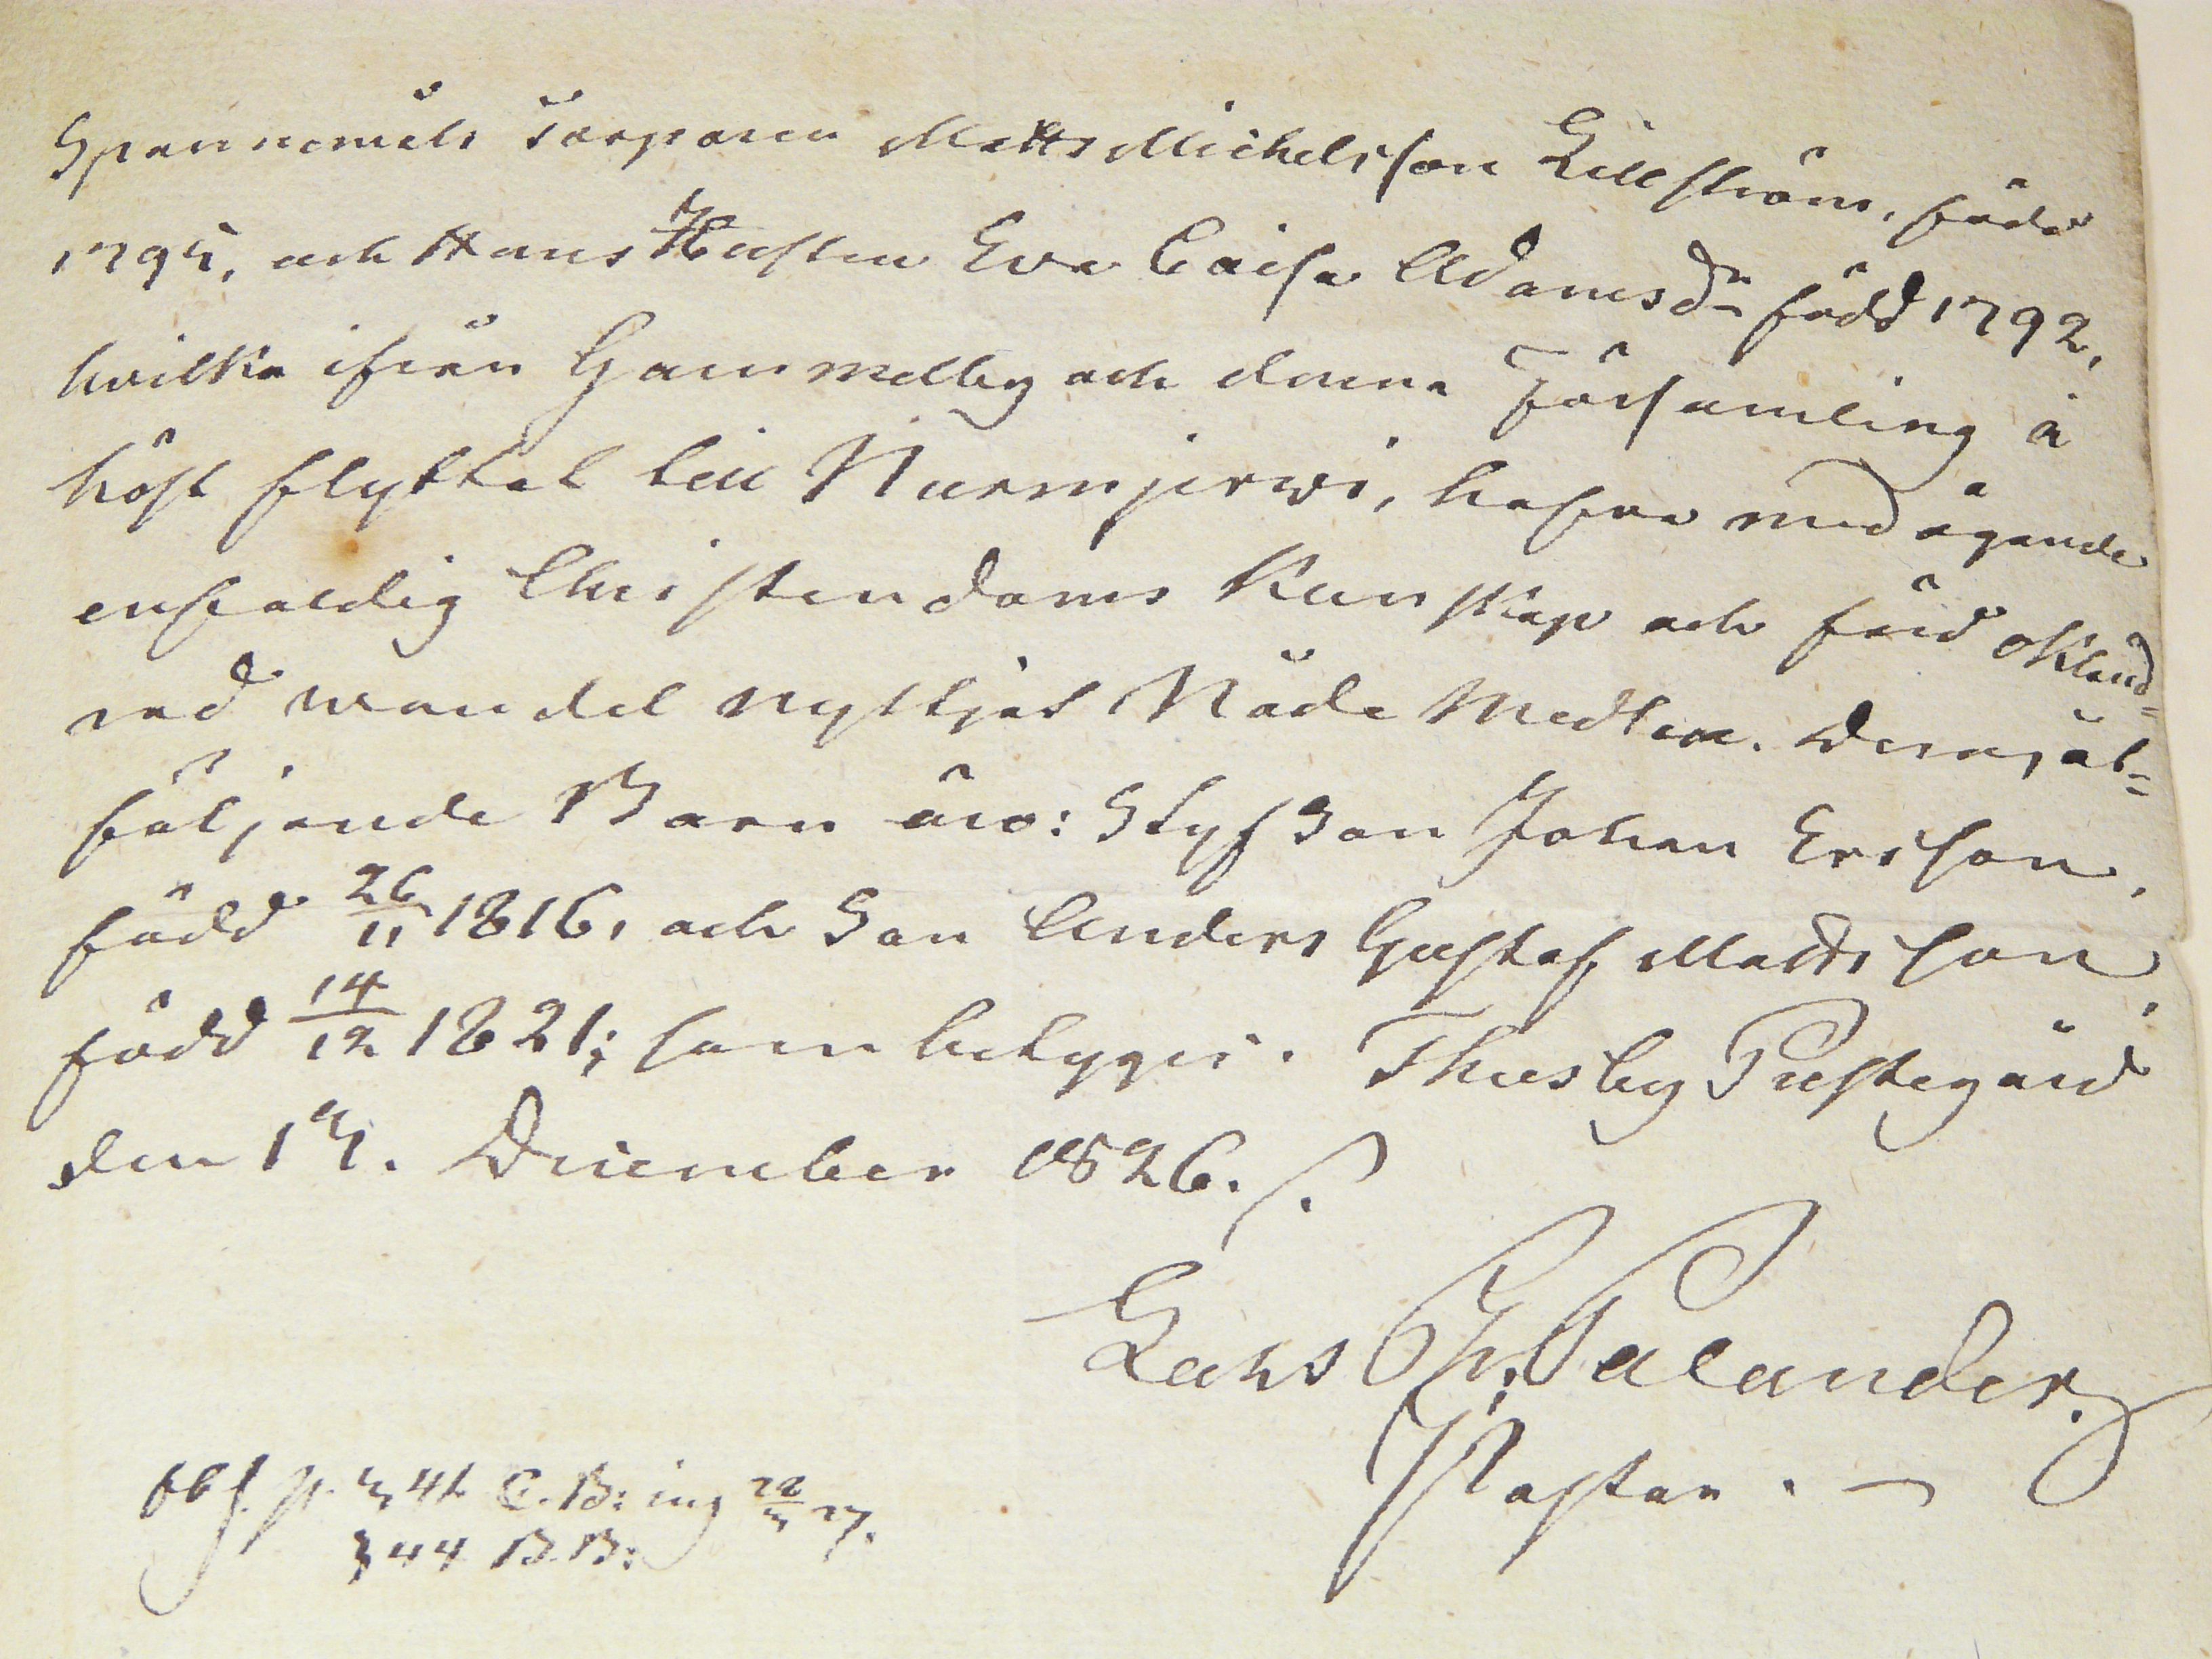 Spannemåls Torparen Matts Michelsson Lillström, född
1795, och Hans Hustru Eva Caisa Adamsdr född 1792,
hvilka ifrån Gammelby och denna Församling i
höst flyttat till Nurmijerwi, hafva med ägande
enfaldig Christendoms Kunskap och förd okland=
rad wandel nyttjat Nåde Medlen. Deras åt=
följande Barn äro: StyfSon Johan Ericson,
född 26/11 1816, och Son Anders Gustaf Mattsson,
född 14/12 1821; som betygar. Thusby Prestegård
den 15. December 1826.
Lars Palander.
Pastor. —
441 C.B: ing 27.
344 B.B: